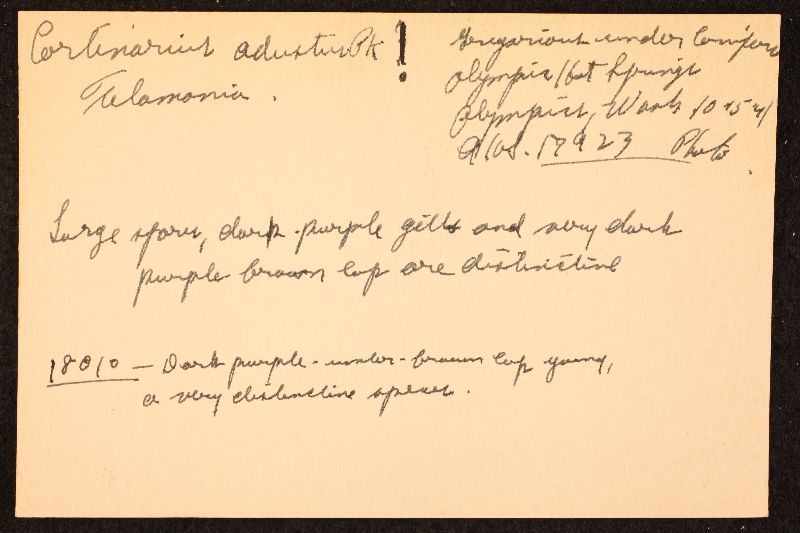 Cortinarius adustus Pk !
Telamonia.
Gregarious under Conifers
Olympic Hot Springs
Olympics, Wash 10-15-41
17923 Photo.
Large spores, dark-purple gills and very dark
purple brown cap are distinctive
18010 — Dark purple-umber-brown cap young,
a very distinctive species.